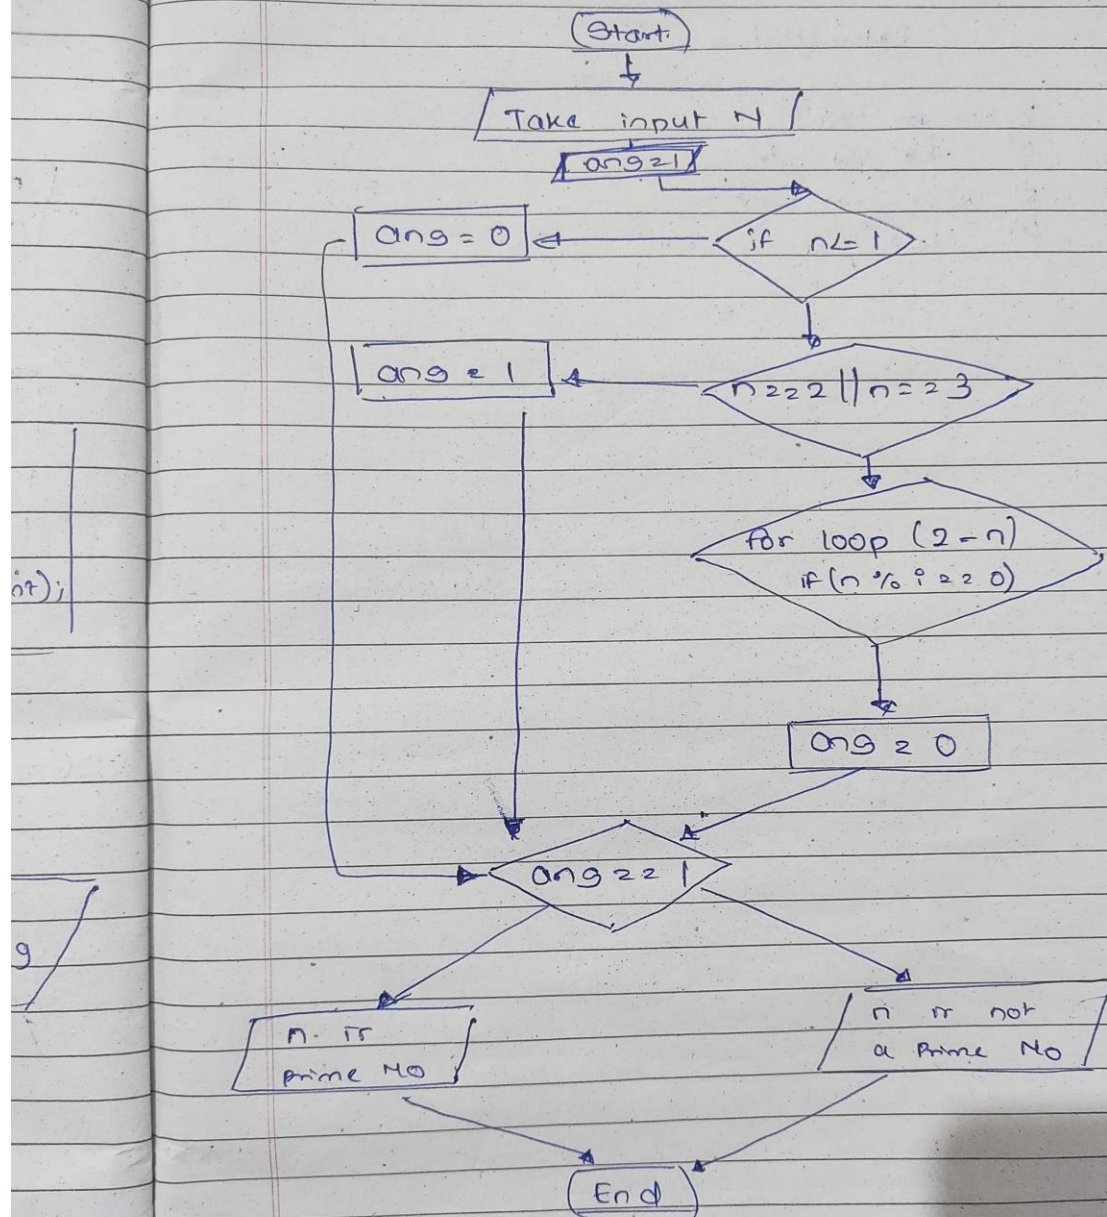 Start
Take input N
ans=1
if n<= 1
ans = 0
n==2 || n==3
ans = 1
for loop (2-n)
if(n % i == 0)
ans = 0
ans== 1
n. is
prime No
n is not
a Prime No
End
nt);
g